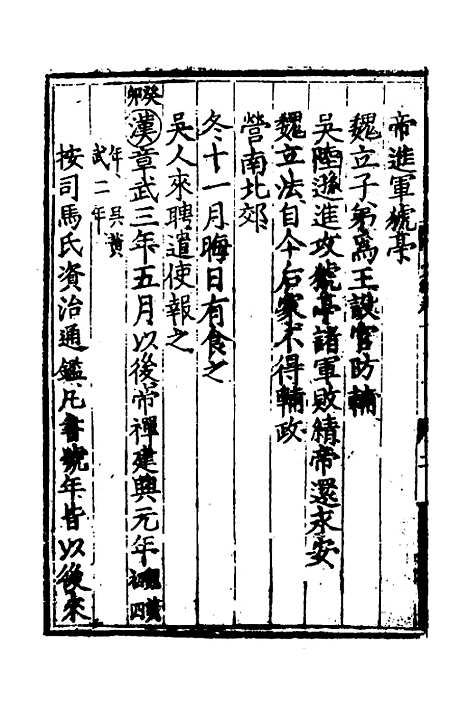 帝進軍猇亭
魏立子弟為王設官防輔
吳陸遜進攻猇亭諸軍敗績帝還永安
魏立法自今后家不得輔政
營南北郊
冬十一月晦日有食之
吳人來聘遣使報之
癸卯
漢章武三年五月以後帝禪建興元年魏黃初四
年吳黃
武二年
按司馬氏資治通鑑凡書號年皆以後來